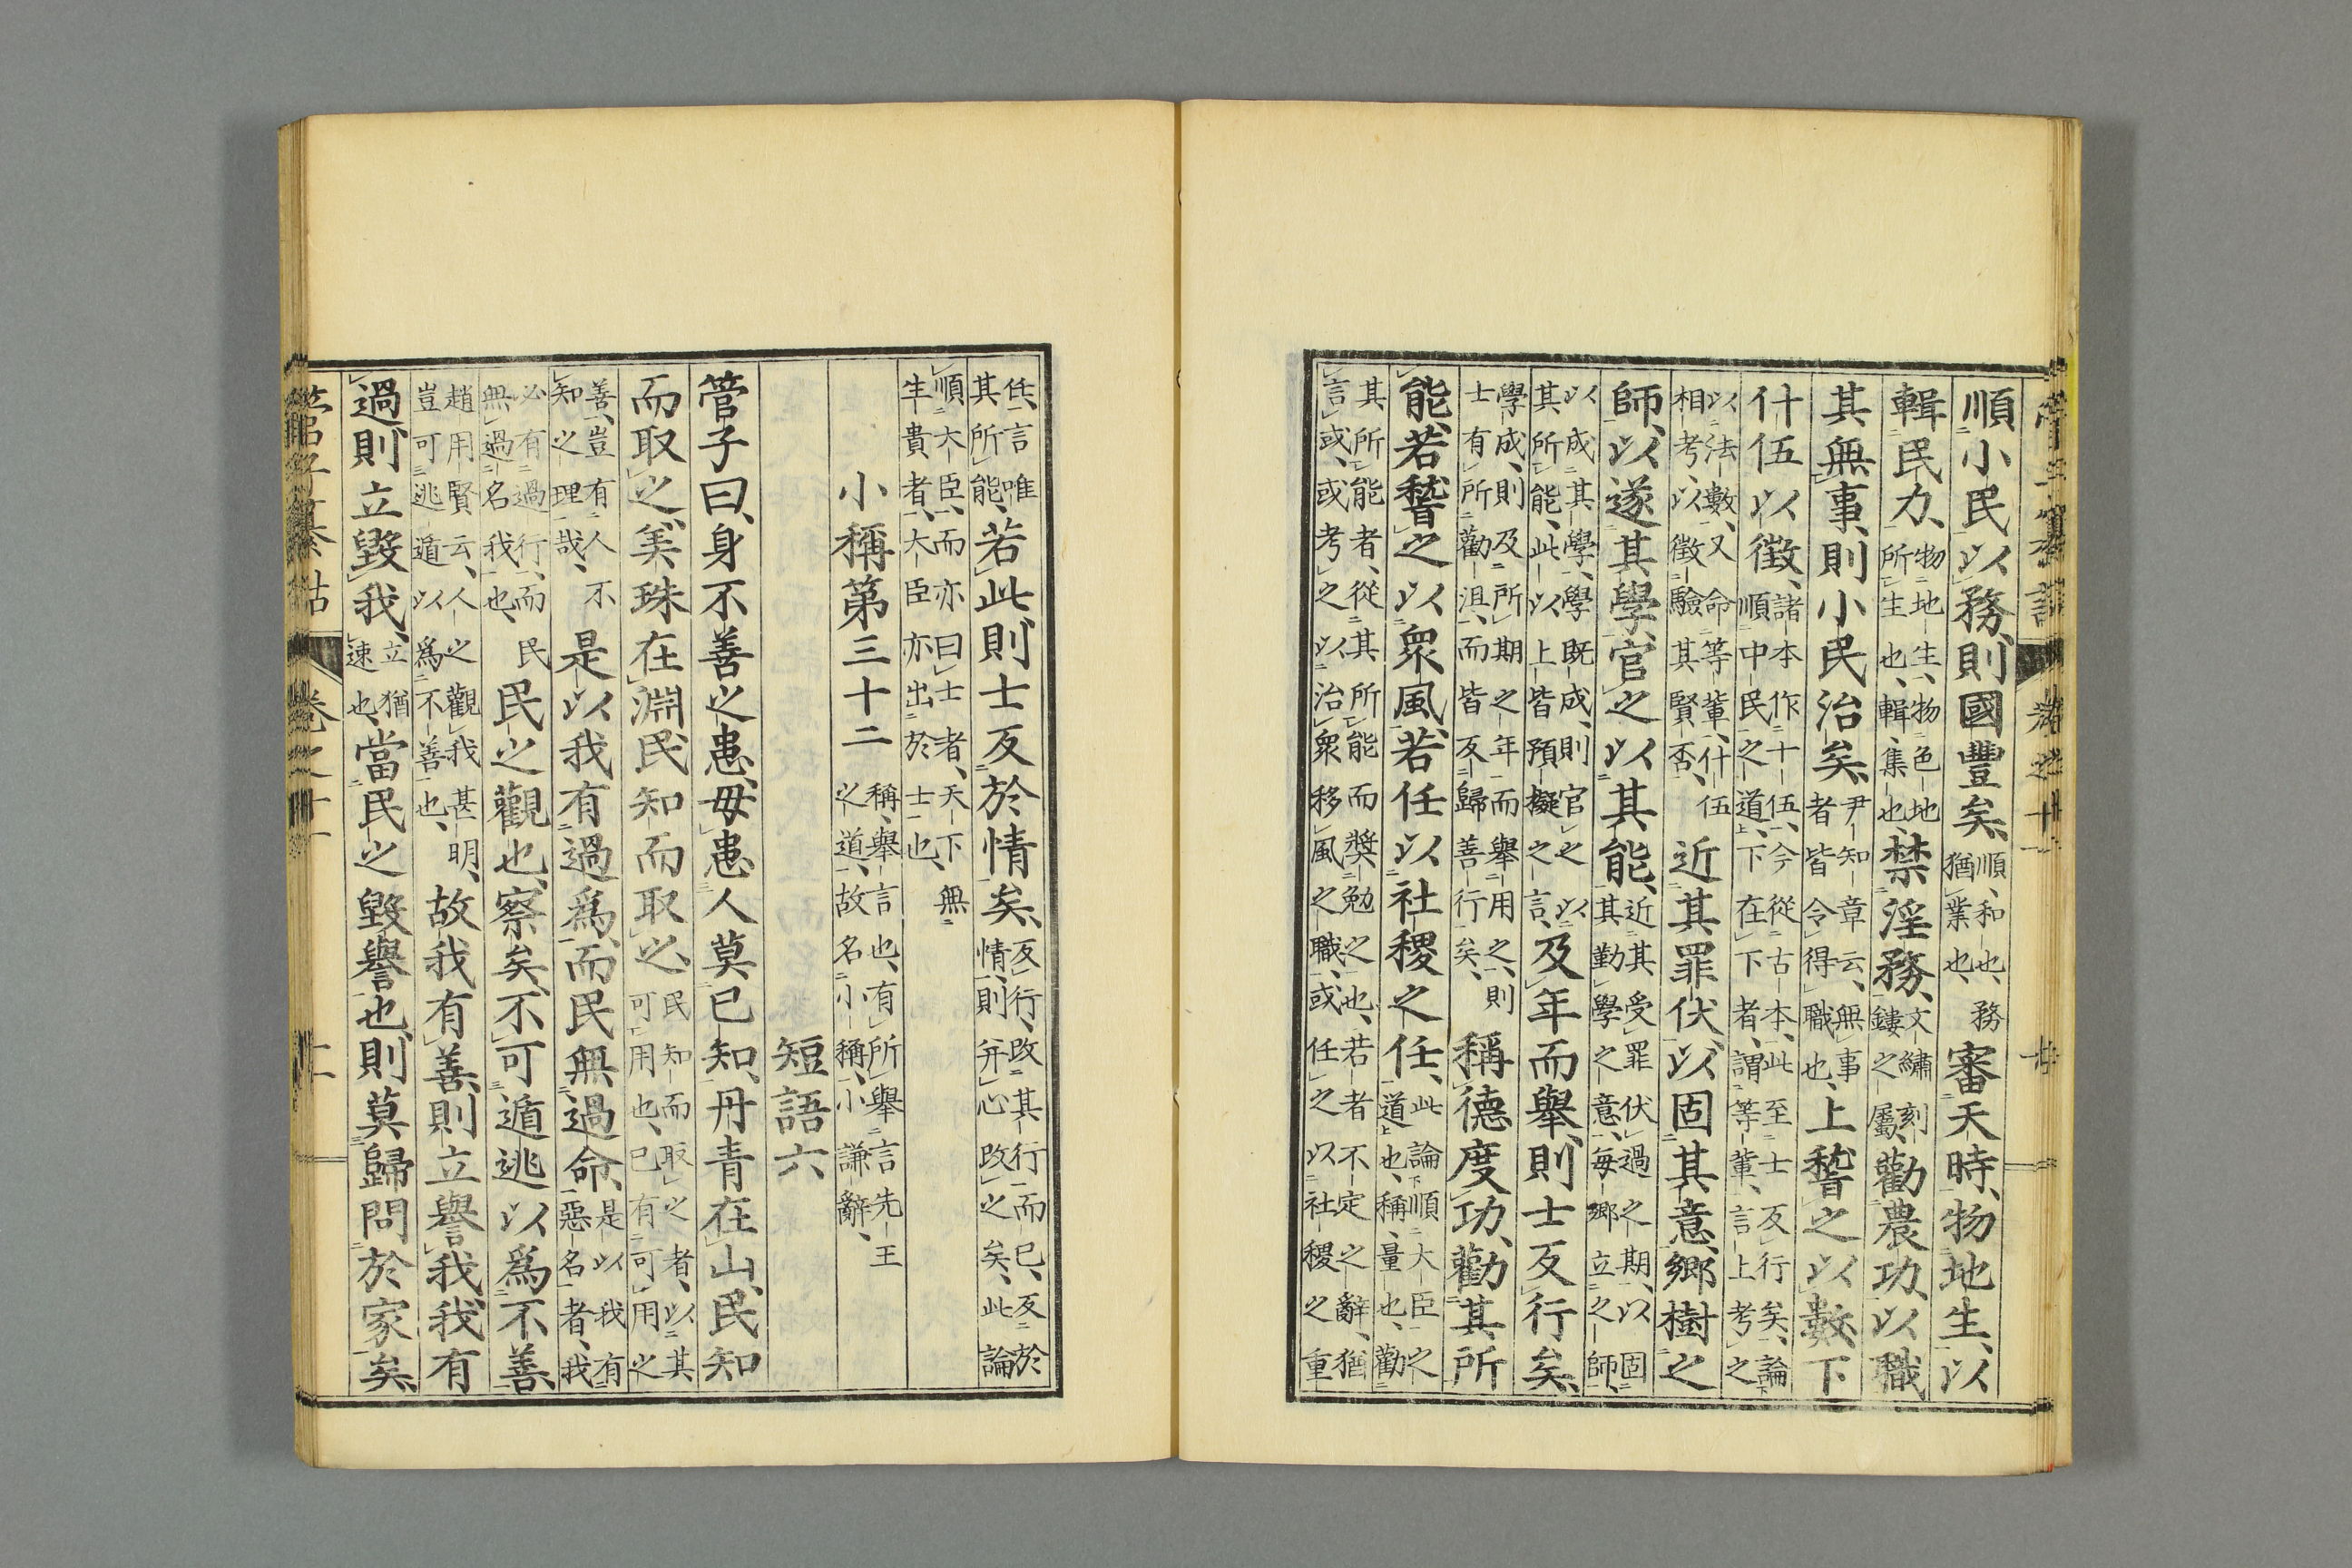 順小民以務、則國豐矣、順、和也、務猶業也、審天時、物地生、以
輯民力、物地生、物色地所生也、輯、集也、禁淫務、文繡刻鏤之屬、勸農功、以職
其無事、則小民治矣、尹知章云、無事者皆令得職也、上稽之以數、下
什伍以徵、諸本作十伍、今從古本、此至士反行矣、論順中民之道、下在下者、謂等輩、言上考之
以法數、又命等輩、什伍相考、以徵驗其賢否、近其罪伏、以固其意、鄉樹之
師、以遂其學、官之以其能、近其受罪伏過之期、以固其勤學之意、每鄉立之師、
以成其學、學既成、則官之以其所能、此以上皆預擬之言、及年而舉、則士反行矣、
學成、則及所期之年而舉用之、則士有所勸沮、而皆反歸善行矣、稱德度功、勸其所
能、若稽之以眾風、若任以社稷之任、此論順大臣之道也、稱、量也、勸
其所能者、從其所能而獎勉之也、若者不定之辭、猶言或、或考之以治眾移風之職、或任之以社稷之重
任、言唯其所能、若此、則士反於情矣、反行、改其行而已、反於情、則并心改之矣、此論
順大臣、而亦曰士者、天下無生貴者、大臣亦出於士也、
小稱第三十二 稱、舉言也、有所舉言先王之道、故名小稱、小謙辭、
短語六
管子曰、身不善之患、毋患人莫己知、丹青在山、民知
而取之、美珠在淵、民知而取之、民知而取之者、以其可用也、己有可用之
善、豈有人不知之理哉、是以我有過爲、而民無過命、是以我有惡名者、我
必有過行、而民無過名我也、民之觀也、察矣、不可遁逃以爲不善、
趙用賢云、人之觀我甚明、豈可逃遁以爲不善也、故我有善、則立譽我、我有
過、則立毀我、立猶速也、當民之毀譽也、則莫歸問於家矣、
管子纂詁 卷之十一